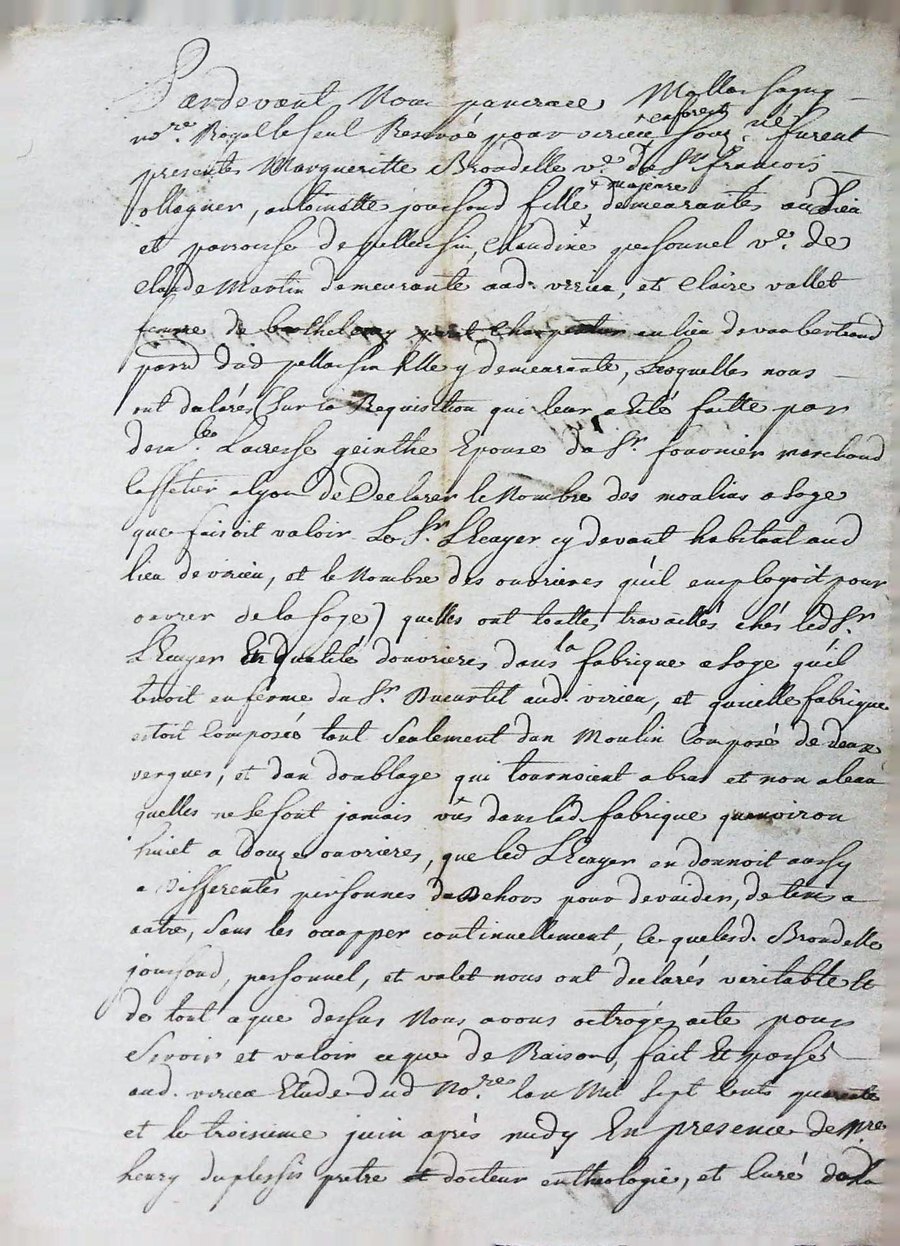 Pardevant Nous pancrace Mallassagny
no.re Royal le seul Reservé pour virieu soug.né furent
et laforest
presents Margueritte Brondelle v.e de Sr francois
ollagner, antoinette joussond fille + demeurantes audlieu
+ majeure
et parroisse de pellussin, Claudine personnel v.e de
Claude Martin demeurante aud. virieu, et Claire vallet
femme de barthelemy Charpentier au lieu de vaubertrand
parr.e dud pellussin Elle y demeurante, Lesquelles nous
ont declarés (sur la Requisition qui leur a Eté faitte par
dem.lle Lucresse geinthe Epouse du Sr. fournier marchand
Caffetier a lyon de Declarer le Nombre des moulins a soye
que faisoit valoir Le Sr. LEcuyer cy devant habitant aud
lieu de virieu, et le Nombre des ouvrieres qu'il employoit pour
ouvrer de la soye) quelles ont toutes travaillés chés led Sr.
LEcuyer En qualité douvrieres dans la fabrique a soye qu'il
tenoit en ferme du Sr. Ducurtil aud. virieu, et qu'icelle fabrique
estoit Composée tout seulement dun Moulin Composé de deux
vergues, et dun doublage qui tournoient a bras et non a leau
quelles ne se sont jamais vûs dans led. fabrique quenviron
huict a douze ouvrieres, que led LEcuyer en donnoit aussy
a differentes personnes du Dehors pour devuider, de tems a
autre, sans les occupper continuellement, ce que lesd. Brondelle
joussond, personnel, et valet nous ont declarés veritable Et
de tout ce que dessus Nous avons octroyé acte pour
servir et valoir ce que de Raison, fait Et passé
aud. virieu Etude dud No.re lan Mil sept Cents quarente
et le troisieme juin après midy En presence de M.re
henry duplessis pretre et docteur en theologie, et Curé de la